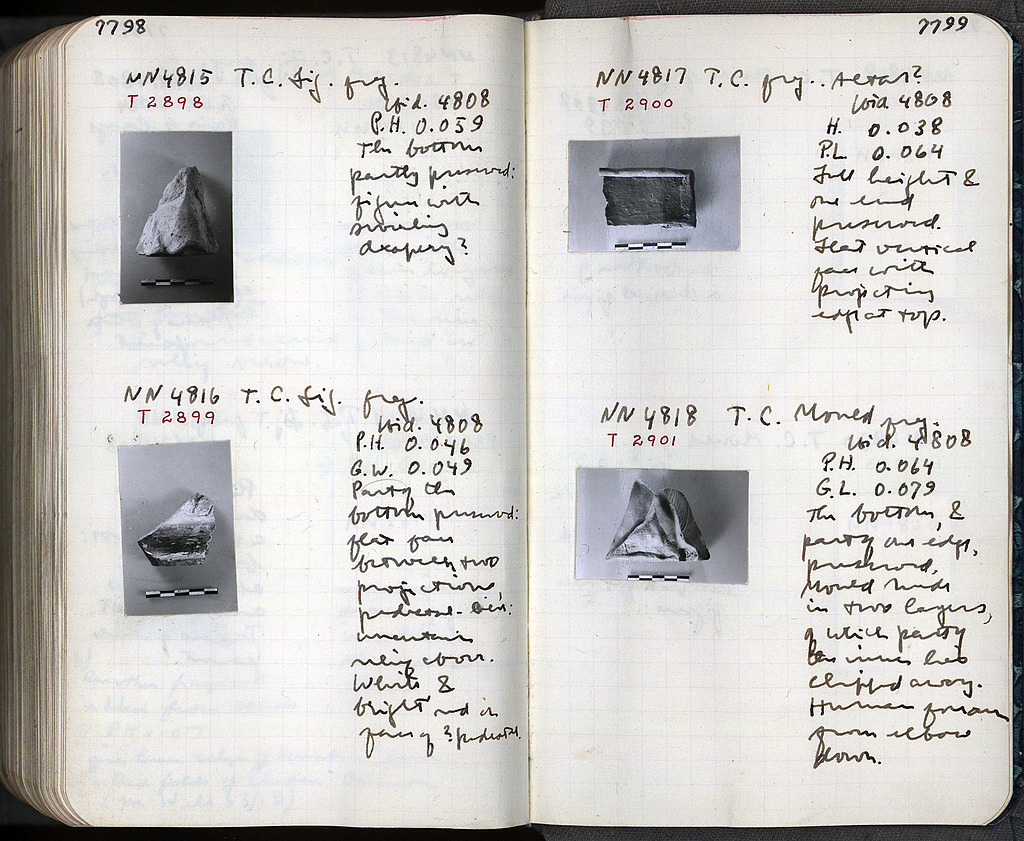 7798
NN4815 T.C. Fig. frag.
T 2898
Wid. 4808
P.H. 0.059
The bottom
partly preserved:
figure with
swirling
drapery?
NN4816 T.C. Fig. frag.
T 2899
Wid. 4808
P.H. 0.046
G.W. 0.049
Part of the
bottom preserved:
flat face
between two
projections,
pedestal-like:
uncertain
relief above.
White &
bright red on
face of ? pedestal.
7799
NN4817 T.C. frag. Altar?
T 2900
Wid 4808
H. 0.038
P.L. 0.064
Full height &
one end
preserved.
Flat vertical
face with
projecting
edge at top.
NN 4818 T.C. Mould frag.
T 2901
Wid. 4808
P.H. 0.064
G.L. 0.079
The bottom, &
part of one edge,
preserved.
Mould made
in two layers,
of which part of
the inner has
chipped away.
Human forearm
from elbow
down.